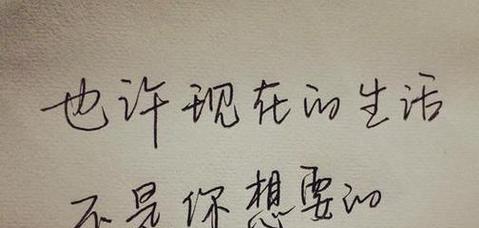 也许现在的生活
不是你想要的